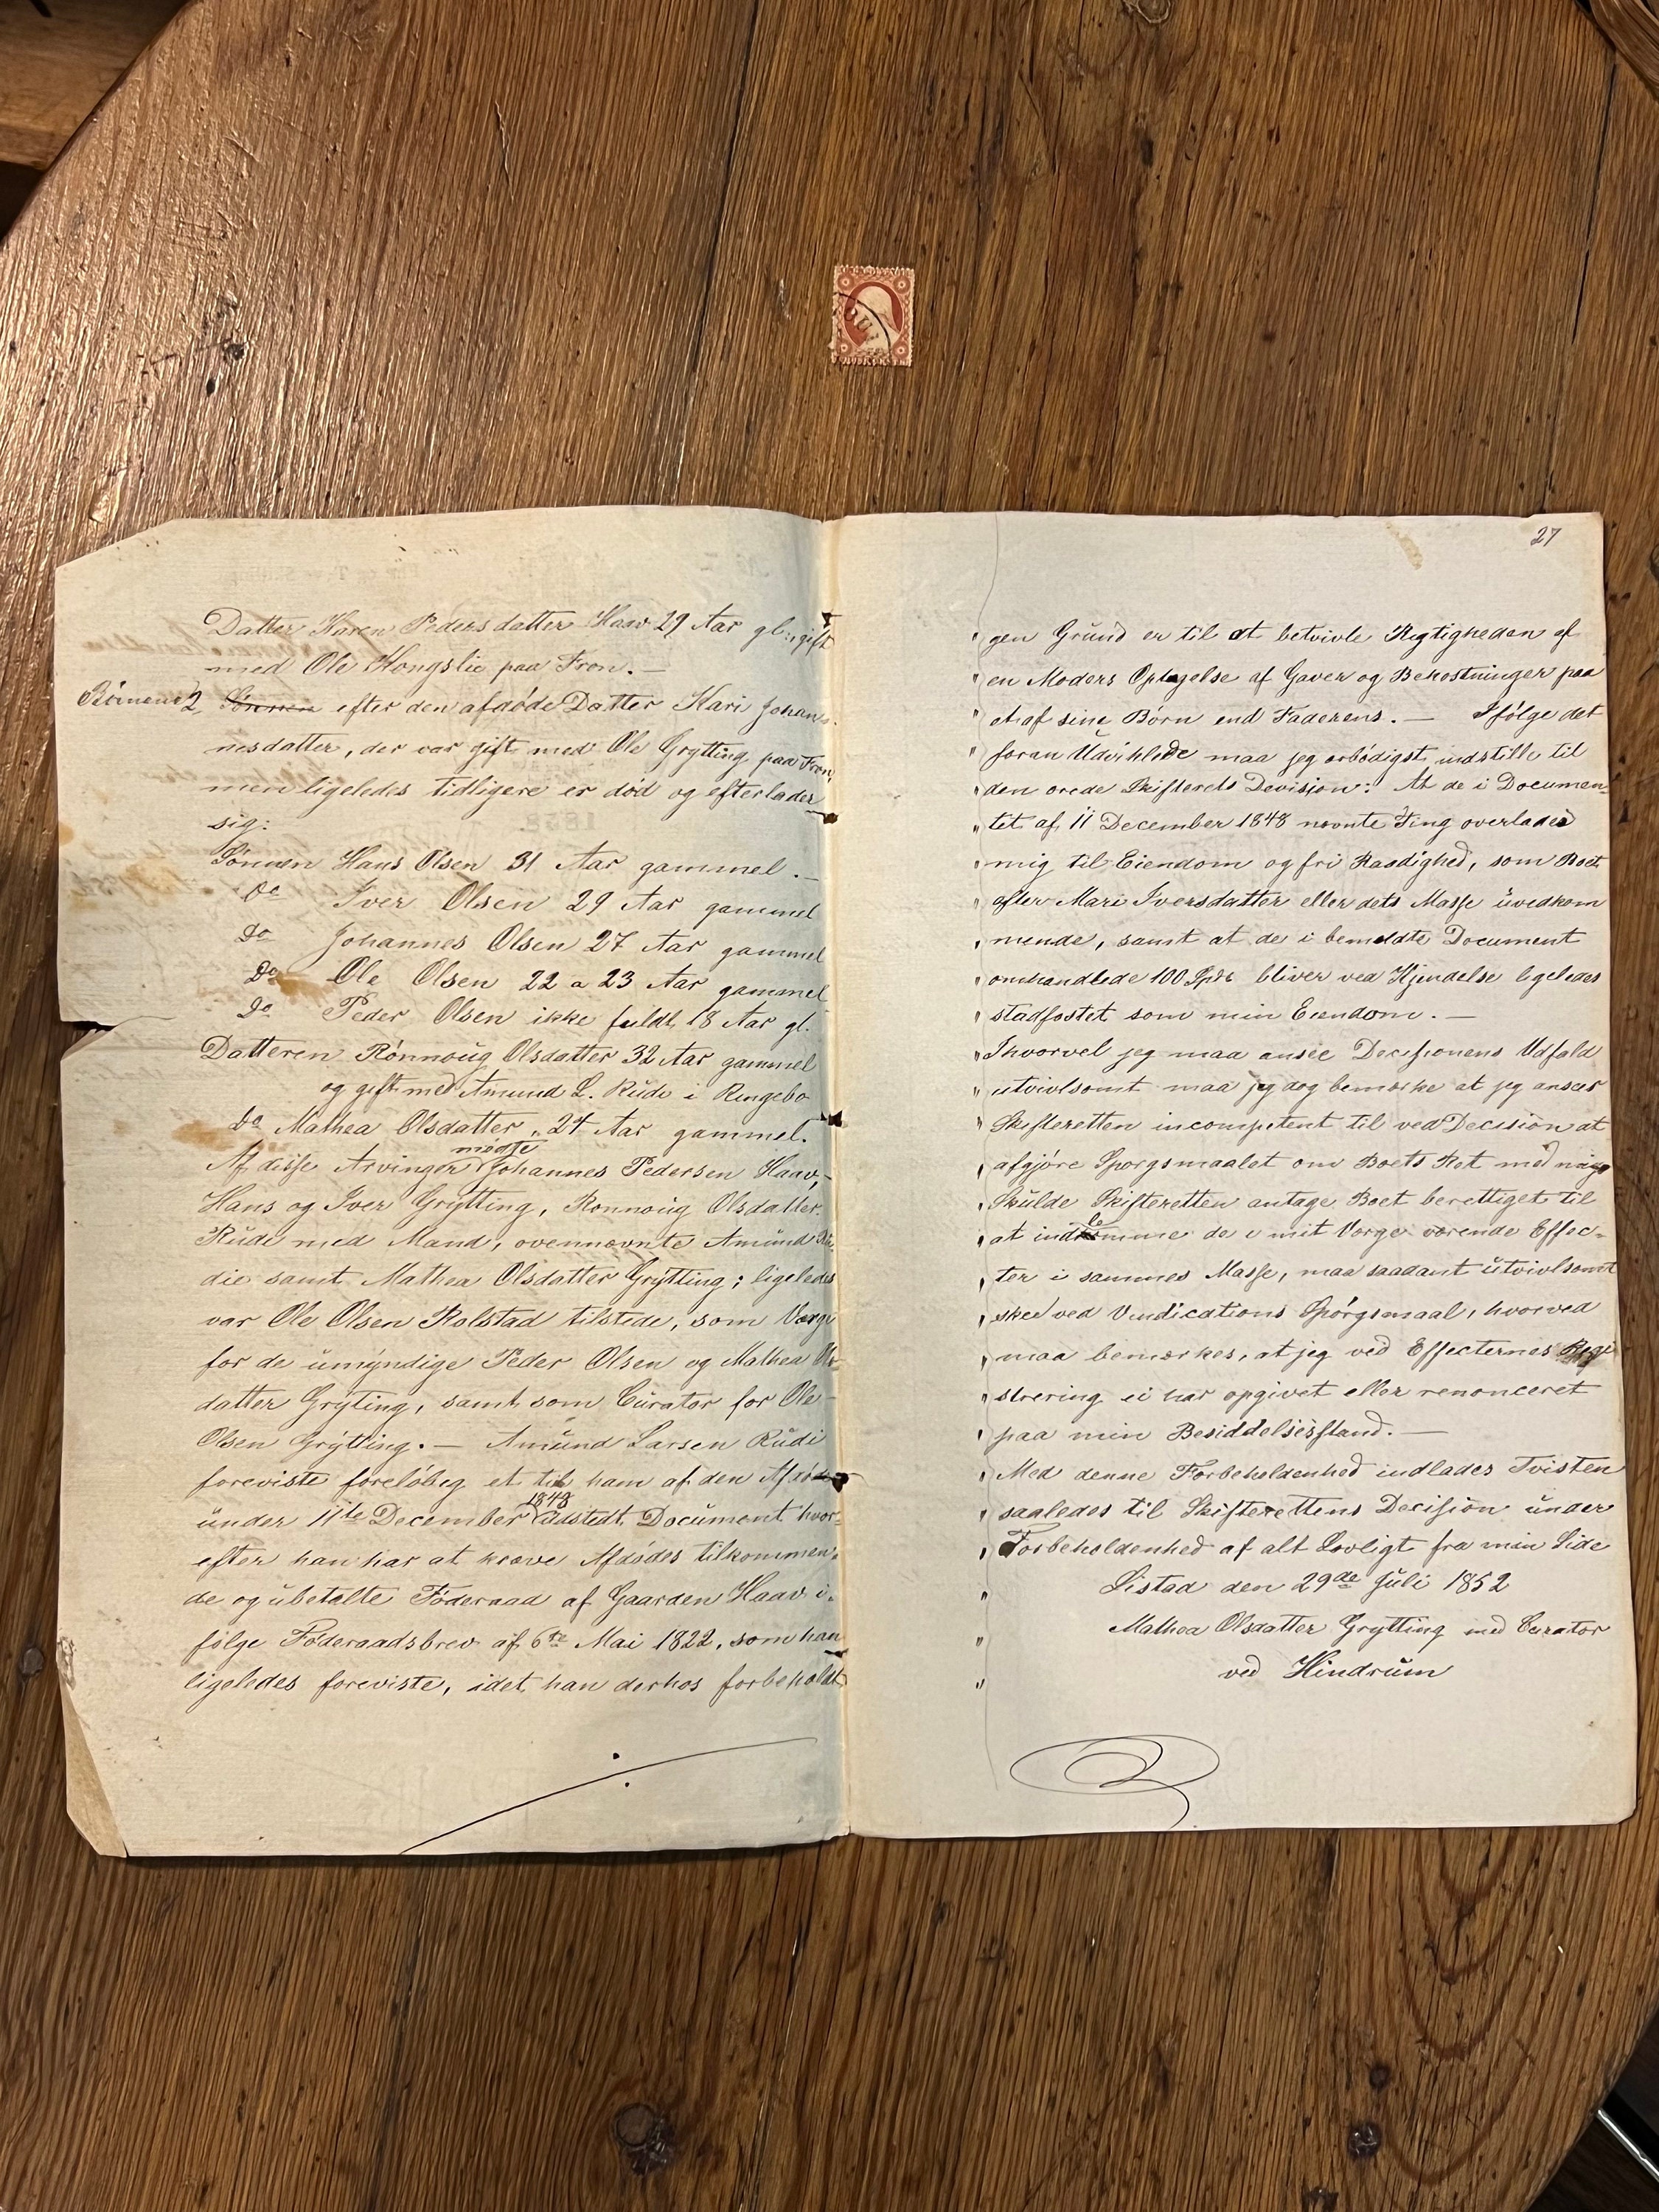 Datter Karen Pedersdatter Haav 29 Aar gl., gift
med Ole Kongslie paa Fron. —
Börnene 2, Sönnen efter den afdöde Datter Kari Johan-
nesdatter, der var gift med Ole Grytting paa Fron,
men ligeledes tidligere er död og efterlader
sig:
Sönnen Hans Olsen 31 Aar gammel. —
Do Iver Olsen 29 Aar gammel
Do Johannes Olsen 27 Aar gammel
Do Ole Olsen 22 a 23 Aar gammel
Do Peder Olsen ikke fuldt 18 Aar gl.
Datteren Rönnoug Olsdatter 32 Aar gammel
og gift med Amund L. Rudi i Ringebo
Do Mathea Olsdatter, 24 Aar gammel.
Af disse Arvinger mødte Johannes Pedersen Haav,
Hans og Iver Grytting, Ronnoug Olsdatter
Rudi med Mand, ovennævnte Amund Ru-
die samt Mathea Olsdatter Grytting; ligeledes
var Ole Olsen Rolstad tilstede, som Værge
for de umyndige Peder Olsen og Mathea Ols-
datter Gryting, samt som Curator for Ole
Olsen Grytting. — Amund Larsen Rudi
foreviste forelöbig et til ham af den Afdöde
under 11te December 1848 udstedt Document hvor-
efter han har at kræve Afdödes tilkommen-
de og ubetalte Föderaad af Gaarden Haav i-
fölge Föderaadsbrev af 6te Mai 1822, som han
ligeledes foreviste, idet han derhos forbeholdt
27
" gen Grund er til at betvivle Rigtigheden af
" en Moders Optagelse af Gaver og Bekostninger paa
" et af sine Börn end Faderens. — Ifölge det
" foran Udviklede maa jeg ærbödigst indstille til
" den ærede Skifterets Decision: At de i Documen-
" tet af 11 December 1848 nævnte Ting overlades
" mig til Eiendom og fri Raadighed, som Boet
" efter Mari Iversdatter eller dets Masse uvedkom
" mende, samt at de i bemeldte Document
" omhandlede 100 Spdr bliver ved Kjendelse ligeledes
" stadfæstet som min Eiendom. —
" Ihvorvel jeg maa ansee Decisionens Udfald
" utvivlsomt maa jeg dog bemærke at jeg anser
" Skifteretten incompetent til ved Decision at
" afgjöre Spørgsmaalet om Boets Ret med mig
" Skulde Skifteretten antage Boet berettiget til
" at indlemme de i mit Værge værende Effec-
" ter i sammes Masse, maa saadant utvivlsomt
" skee ved Vindications Spörgsmaal, hvorved
" maa bemærkes, at jeg ved Effecternes Regi
" strering ei har opgivet eller renonceret
" paa min Besiddelsesstand. —
" Med denne Forbeholdenhed indlades Tvisten
" saaledes til Skifterettens Decision under
" Forbeholdenhed af alt Lovligt fra min Side
" Listad den 29de Juli 1852
" Mathea Olsdatter Grytting med Curator
" ved Hindrum